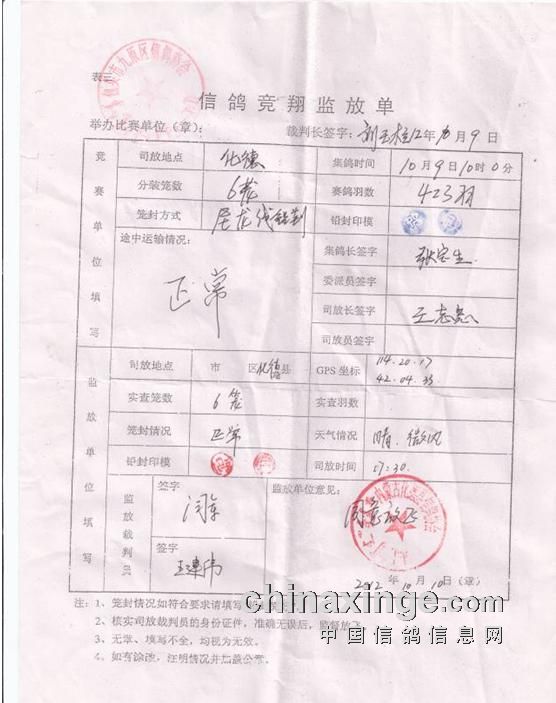 表三
包头市九原区信鸽协会
信鸽竞翔监放单
举办比赛单位（章）： 裁判长签字：刘玉桂12年10月9日
竞赛单位填写
司放地点 化德 集鸽时间 10月9日10时0分
分装笼数 6笼 赛鸽羽数 423羽
笼封方式 尼龙线铅封 铅封印模
途中运输情况： 正常
集鸽长签字 张宝生
委派员签字
司放长签字 王志忠
司放员签字
监放单位填写
司放地点 市 区化德县 GPS坐标 114.20.17
42.04.33
实查笼数 6笼 实查羽数
笼封情况 正常 天气情况 晴.微风
铅封印模 司放时间 07:30
监放裁判员
签字 闫军
签字 王建伟
监放单位意见：
同意放飞
2012年10月10日（章）
注：1、笼封情况如符合要求请填写
2、核实司放裁判员的身份证件，准确无误后，监督放飞。
3、无章、填写不全，均视为无效。
4、如有涂改，注明情况并加盖公章。
chinaxinge.com
中国信鸽信息网